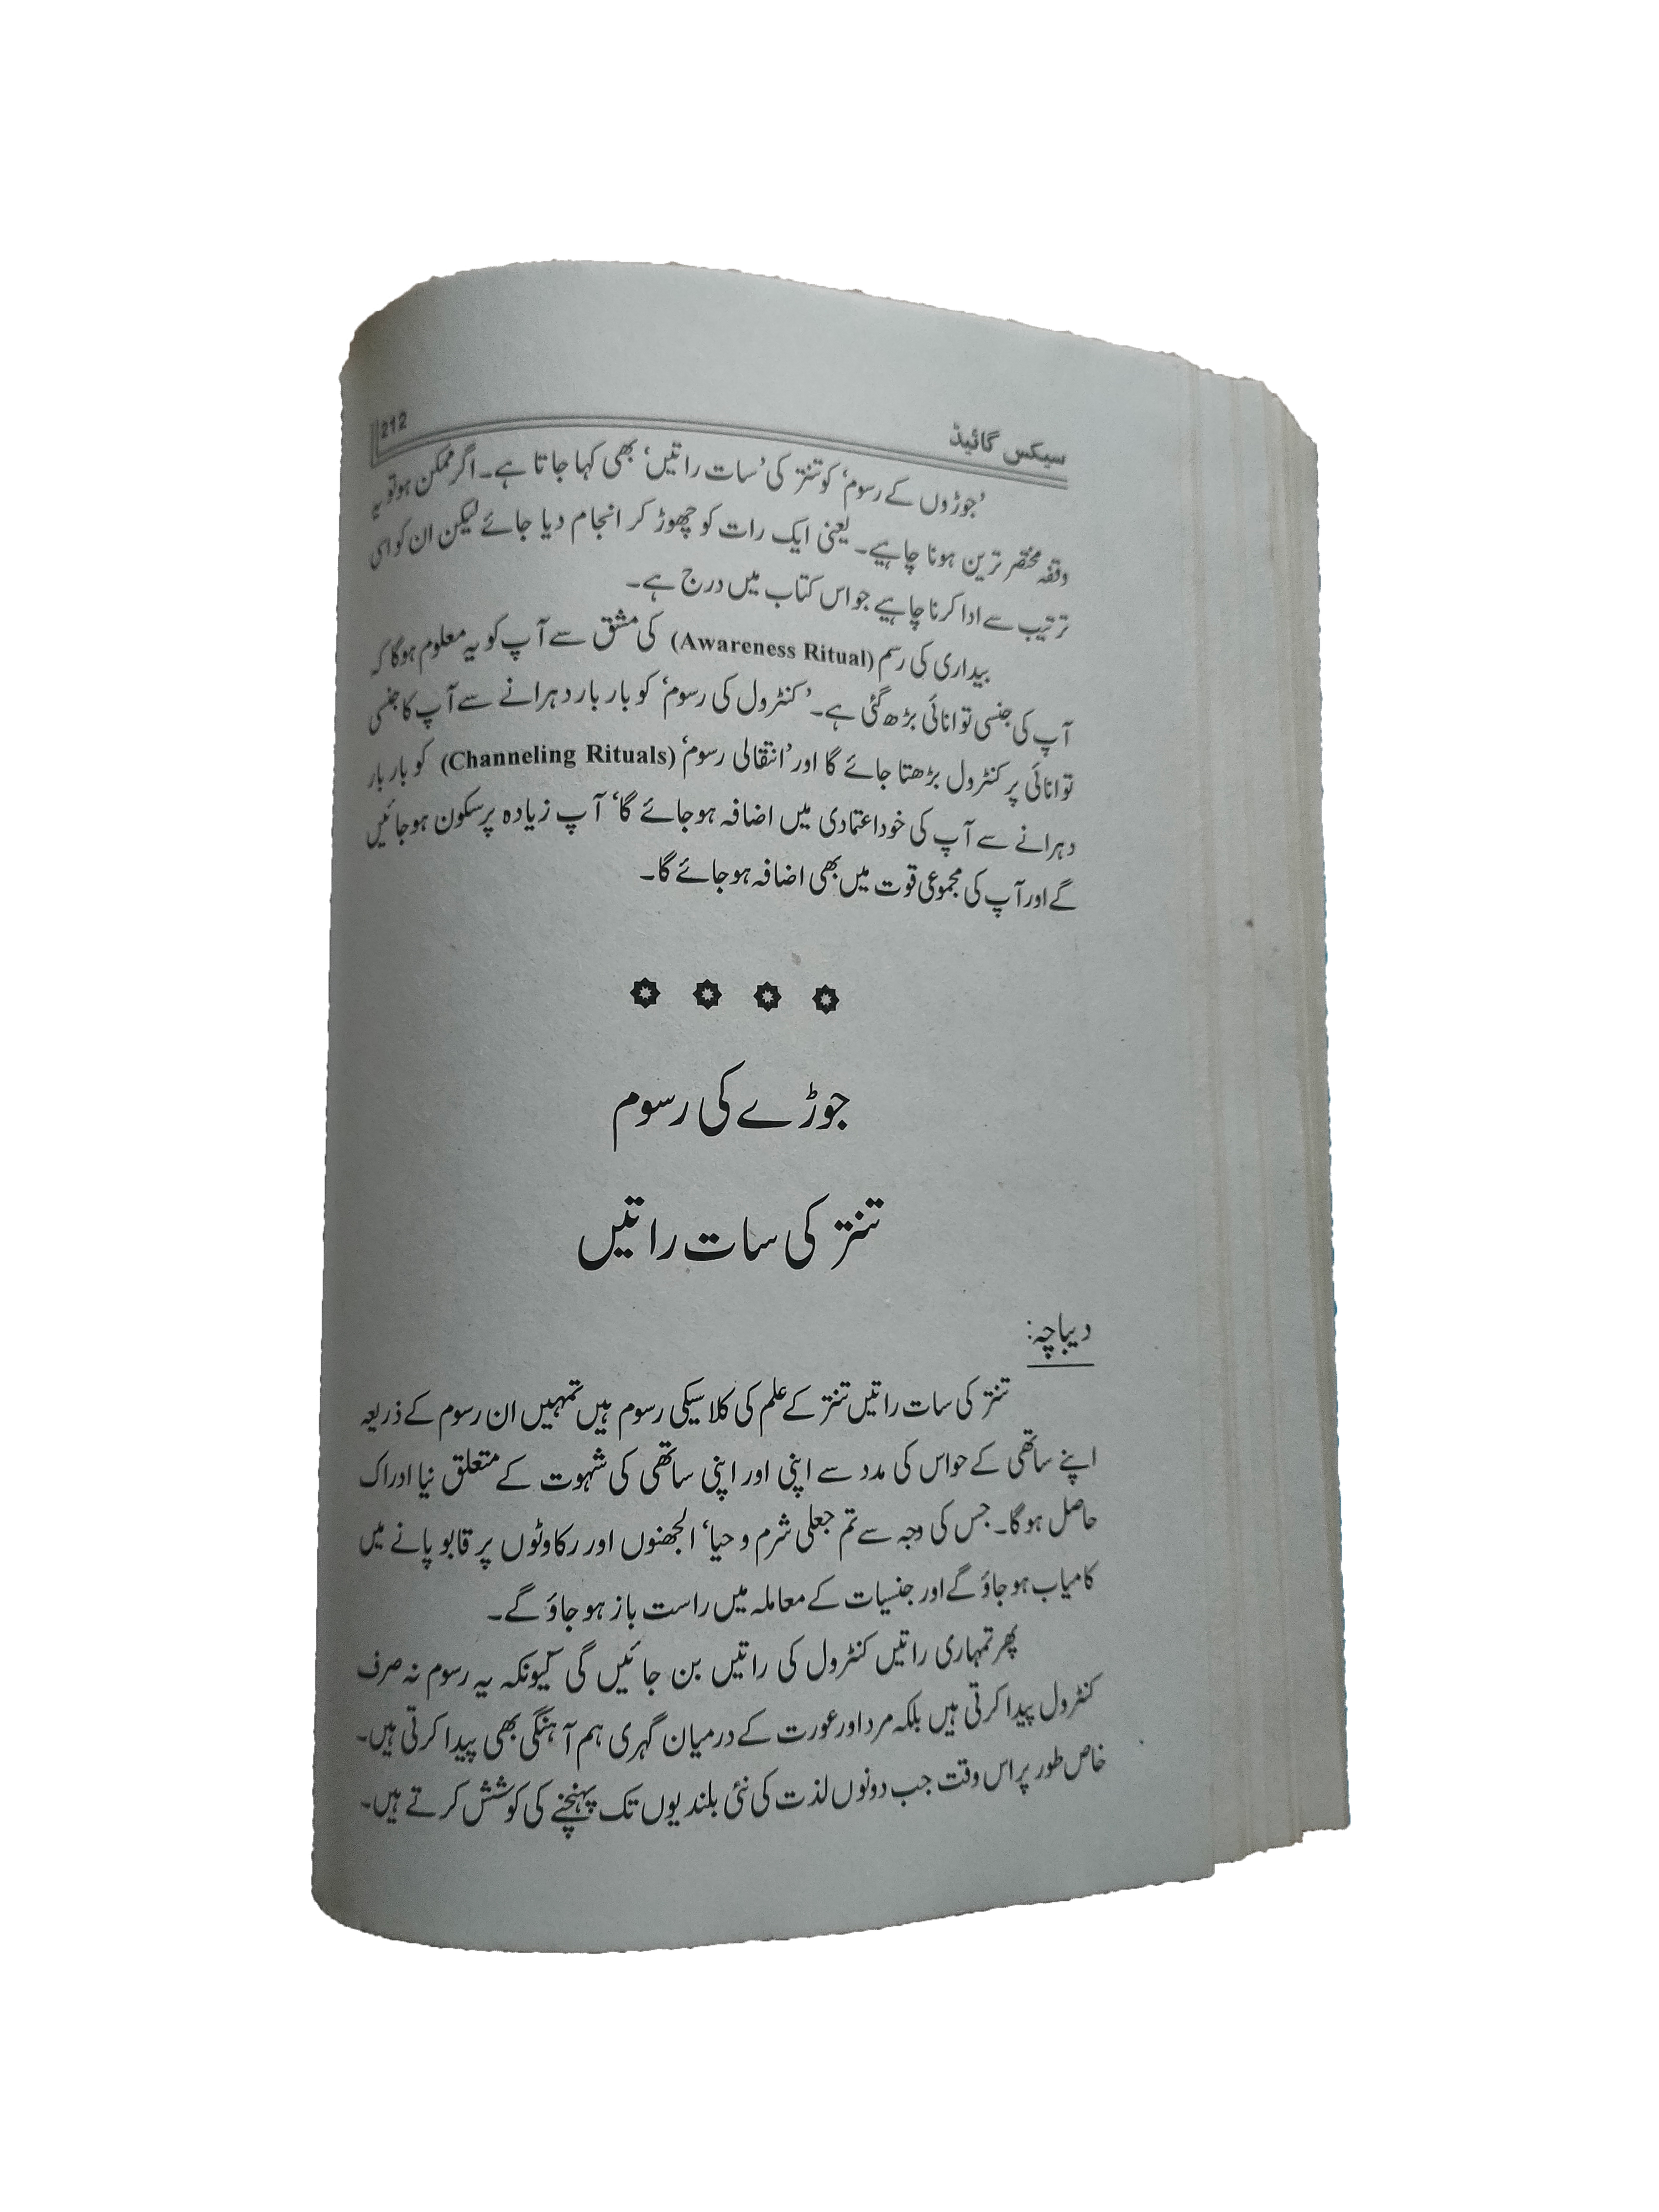 سیکس گائیڈ
212
’جوڑوں کے رسوم‘ کو تنتر کی ’سات راتیں‘ بھی کہا جاتا ہے۔ اگر ممکن ہو تو یہ
وقفہ مختصر ترین ہونا چاہیے۔ یعنی ایک رات کو چھوڑ کر انجام دیا جائے لیکن ان کو اسی
ترتیب سے ادا کرنا چاہیے جو اس کتاب میں درج ہے۔
بیداری کی رسم (Awareness Ritual) کی مشق سے آپ کو یہ معلوم ہوگا کہ
آپ کی جنسی توانائی بڑھ گئی ہے۔ ’کنٹرول کی رسوم‘ کو بار بار دہرانے سے آپ کا جنسی
توانائی پر کنٹرول بڑھتا جائے گا اور ’انتقالی رسوم‘ (Channeling Rituals) کو بار بار
دہرانے سے آپ کی خود اعتمادی میں اضافہ ہو جائے گا‘ آپ زیادہ پرسکون ہو جائیں
گے اور آپ کی مجموعی قوت میں بھی اضافہ ہو جائے گا۔
جوڑے کی رسوم
تنتر کی سات راتیں
دیباچہ:
تنتر کی سات راتیں تنتر کے علم کی کلاسیکی رسوم ہیں تمہیں ان رسوم کے ذریعہ
اپنے ساتھی کے حواس کی مدد سے اپنی اور اپنی ساتھی کی شہوت کے متعلق نیا ادراک
حاصل ہوگا۔ جس کی وجہ سے تم جعلی شرم و حیا‘ الجھنوں اور رکاوٹوں پر قابو پانے میں
کامیاب ہو جاؤ گے اور جنسیات کے معاملہ میں راست باز ہو جاؤ گے۔
پھر تمہاری راتیں کنٹرول کی راتیں بن جائیں گی کیونکہ یہ رسوم نہ صرف
کنٹرول پیدا کرتی ہیں بلکہ مرد اور عورت کے درمیان گہری ہم آہنگی بھی پیدا کرتی ہیں۔
خاص طور پر اس وقت جب دونوں لذت کی نئی بلندیوں تک پہنچنے کی کوشش کرتے ہیں۔